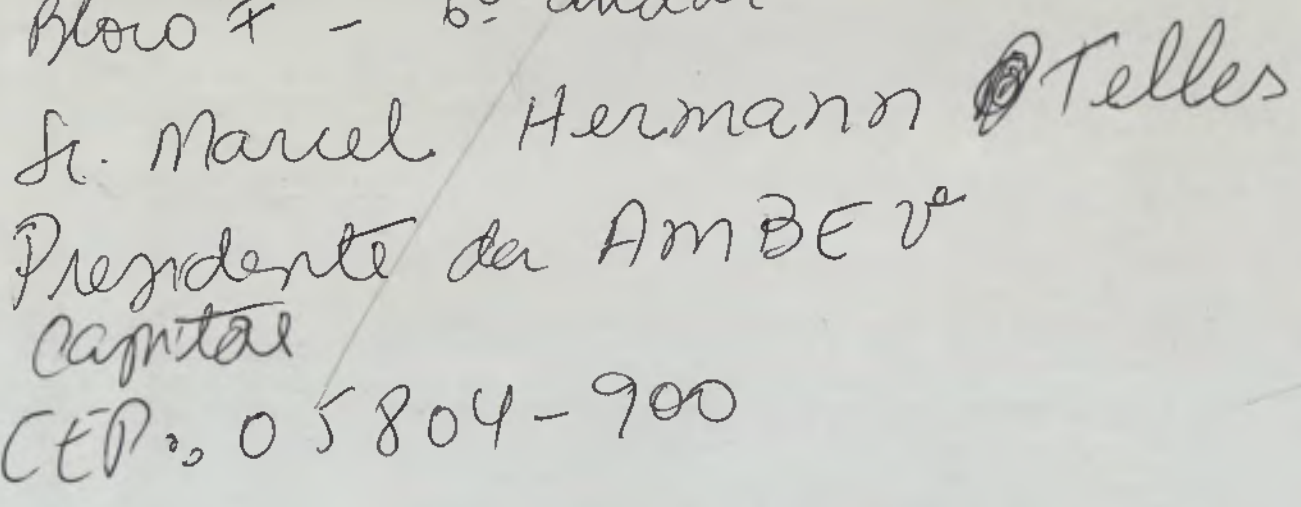 Bloco F - 6º andar
Sr. Marcel Hermann Telles
Presidente da AMBEV
Capital
CEP: 05804-900